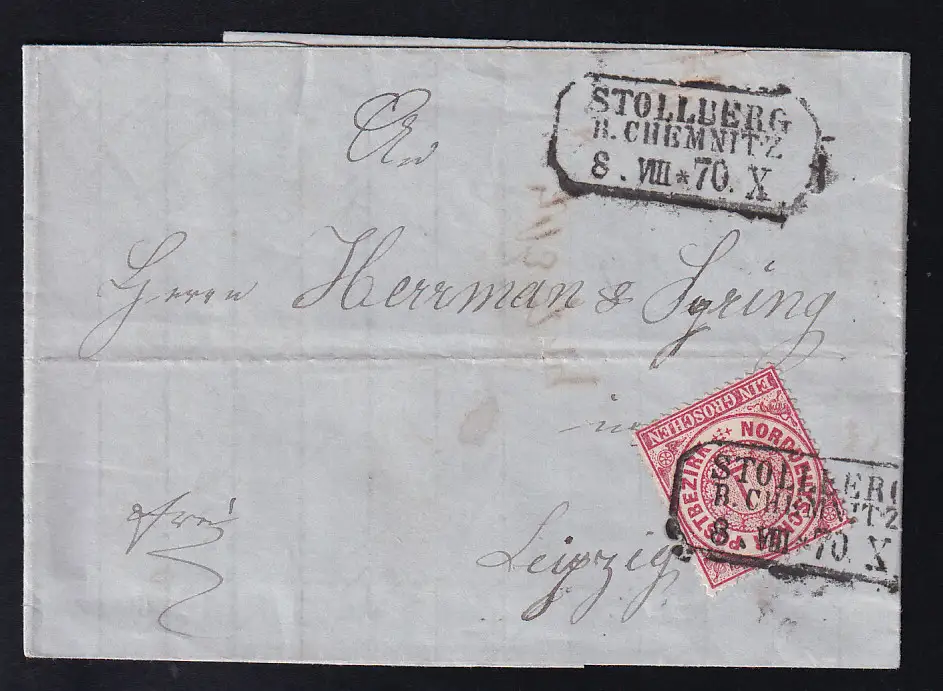 STOLLBERG
B. CHEMNITZ
8. VIII * 70. X
An
Herrn Herrman & Syring
in
Leipzig
frei
EIN GROSCHEN
NORDDEUTSCHER POSTBEZIRK
STOLLBERG
B. CHEMNITZ
8. VIII * 70. X